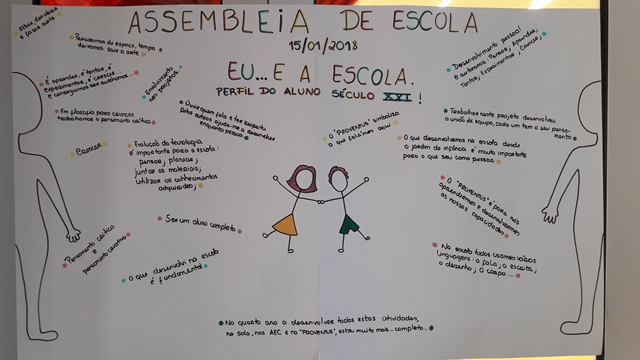 ASSEMBLEIA DE ESCOLA
15/01/2018
EU...E A ESCOLA.
PERFIL DO ALUNO SÉCULO XXI !
Olhar, descobrir
e fazer arte
Precisamos de espaço, tempo e
deixarmos sair a arte
É aprender, é tentar, é
experimentar, é crescer...
e conseguirmos ser autónomos
Envolvimento
nos projetos
Em filosofia para crianças
trabalhamos o pensamento crítico
Ouvir quem fala e ter respeito
pelos outros ajuda-me a desenvolver
enquanto pessoa
Crescer
Evolução da tecnologia
é importante para a escola:
pensar, planear,
juntar os materiais,
utilizar os conhecimentos
adquiridos
Ser um aluno completo
Pensamento crítico
e
pensamento criativo
O que desenvolvi na escola
é fundamental
Desenvolvimento pessoal
e autonomia. Pensar, Aprender,
Tentar, Experimentar, Crescer,
Trabalhar neste projeto desenvolveu
a união de equipa, cada um tem o seu pensa-
mento
O "PROVENTUS" simboliza
o que falámos aqui
O que desenvolvemos na escola desde
o jardim de infância é muito importante
para o que sou como pessoa
O "PROVENTUS" é para nós
aprendermos e desenvolvermos
as nossas capacidades
Na escola todos usamos várias
linguagens: a fala, a escrita,
o desenho, o corpo...
No quarto ano a desenvolver todas estas atividades,
na sala, nas AEC e no "PROVENTUS", estou muito mais...completo...